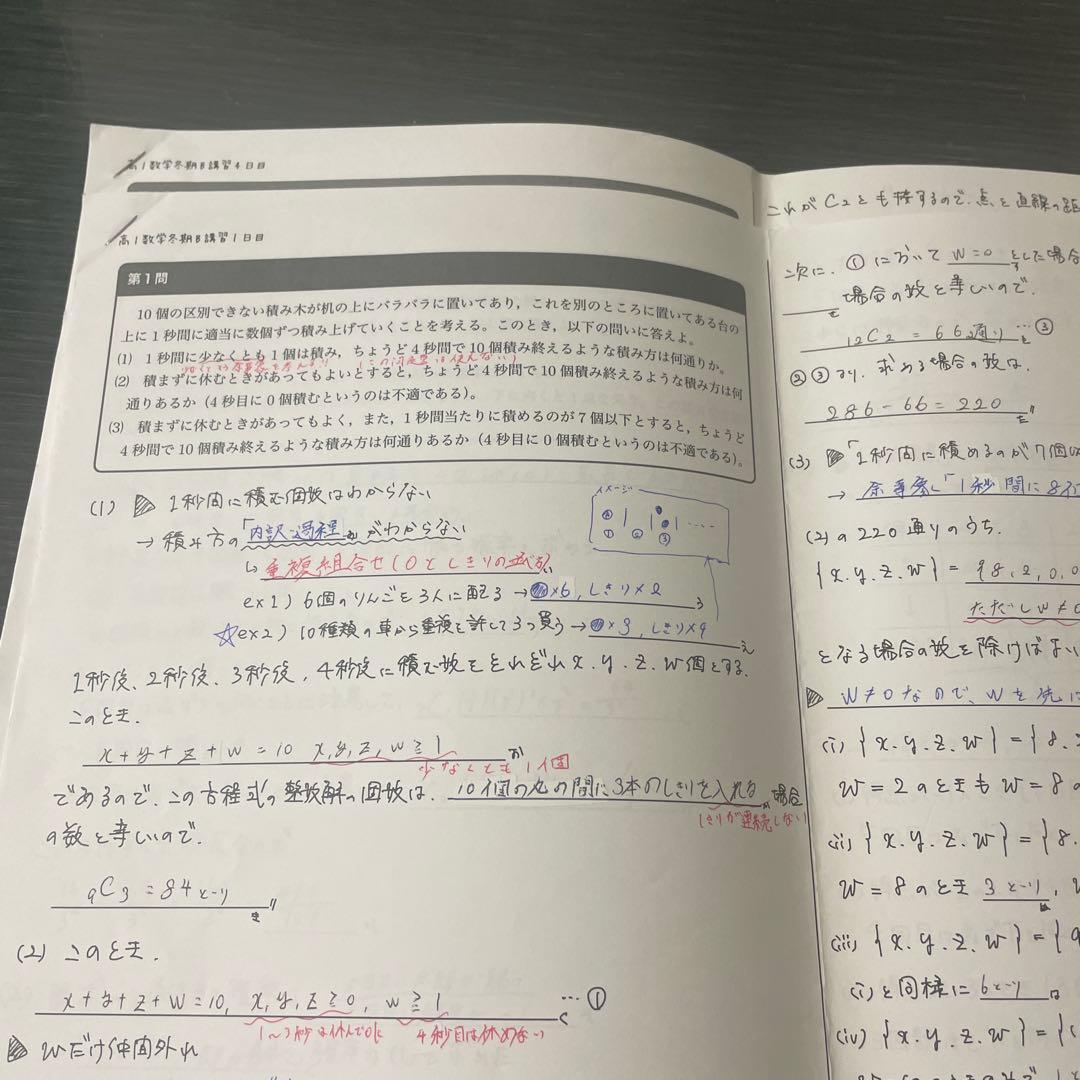 高1数学冬期B講習4日目
高1数学冬期B講習1日目
第1問
10個の区別できない積み木が机の上にバラバラに置いてあり，これを別のところに置いてある台の
上に1秒間に適当に数個ずつ積み上げていくことを考える。このとき，以下の問いに答えよ。
(1) 1秒間に少なくとも1個は積み，ちょうど4秒間で10個積み終えるような積み方は何通りか。
(2) 積まずに休むときがあってもよいとすると，ちょうど4秒間で10個積み終えるような積み方は何
通りあるか (4秒目に0個積むというのは不適である)。
(3) 積まずに休むときがあってもよく，また，1秒間当たりに積めるのが7個以下とすると，ちょうど
4秒間で10個積み終えるような積み方は何通りあるか (4秒目に0個積むというのは不適である)。
(1) 1秒間に積む個数はわからない
イメージ
→ 積み方の「内訳・過程」がわからない
① ② ③
↳ 重複組合せ(○としきりの並び)
ex1) 6個のりんごを3人に配る → ×6, しきり×2
☆ex2) 10種類の車から重複を許して3つ買う → ×3, しきり×9
1秒後、2秒後、3秒後、4秒後に積む数をそれぞれ x, y, z, w個とする.
このとき.
x+y+z+w=10 x, y, z, w≧1
少なくとも1個
であるので、この方程式の整数解の個数は、10個の丸の間に3本のしきりを入れる場合
しきりが連続しない
の数と等しいので.
9C3 = 84通り
(2) このとき.
x+y+z+w=10, x, y, z≧0, w≧1 …①
1〜3秒は休んでOK 4秒目は休めない
wだけ仲間外れ
これがC2とも接するので、点と直線の距
次に、①において w=0 とした場合
場合の数と等しいので.
12C2 = 66通り …③
②③より、求める場合の数は、
286−66=220
(3) 「1秒間に積めるのが7個以
→ 余事象「1秒間に8個
(2)の220通りのうち.
{x. y. z. w} = {8, 2, 0, 0
ただしw≠0
となる場合の数を除けばよい
w≠0なので、wを先に
(i) {x. y. z. w} = {8.
w=2のときもw=8の
(ii) {x. y. z. w} = {8.
w=8のとき 3通り,
(iii) {x. y. z. w} = {9
(i)と同様に 6通り
(iv) {x. y. z. w} = {